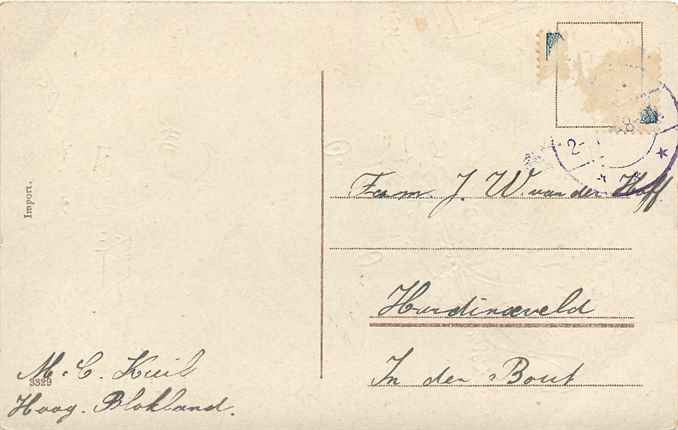 Import.
Fam. J. W. van der Hoff
Hardinxveld
In den Bout
M. C. Kuil
3329
Hoog. Blokland.